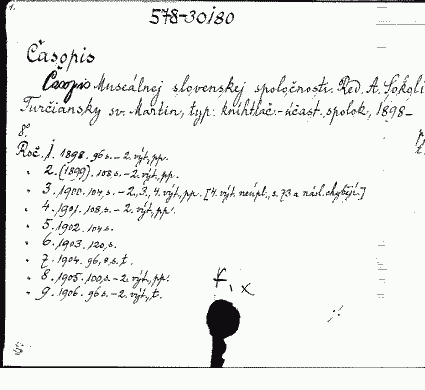 578-30180
Časopis
Časopis Museálnej slovenskej spoločnosti. Red. A. Sokolí
Turčiansky sv. Martin, typ. kníhtlač.-účast. spolok, 1898-
8°.
Roč. 1. 1898. 96 s. - 2. výt., pp.
" 2. (1899). 108, s. - 2. výt., pp.
" 3. 1900. 104, s. - 2, 3, 4. výt., pp. [4. výt. neúpl., s. 73 a násl. chybějí.]
" 4. 1901. 108, s. - 2. výt., pp.
" 5. 1902. 104 s.
" 6. 1903. 120, s.
" 7. 1904. 96, s. t.
" 8. 1905. 100, s. - 2. výt., pp.
" 9. 1906. 96 s. - 2. výt., t.
f, x